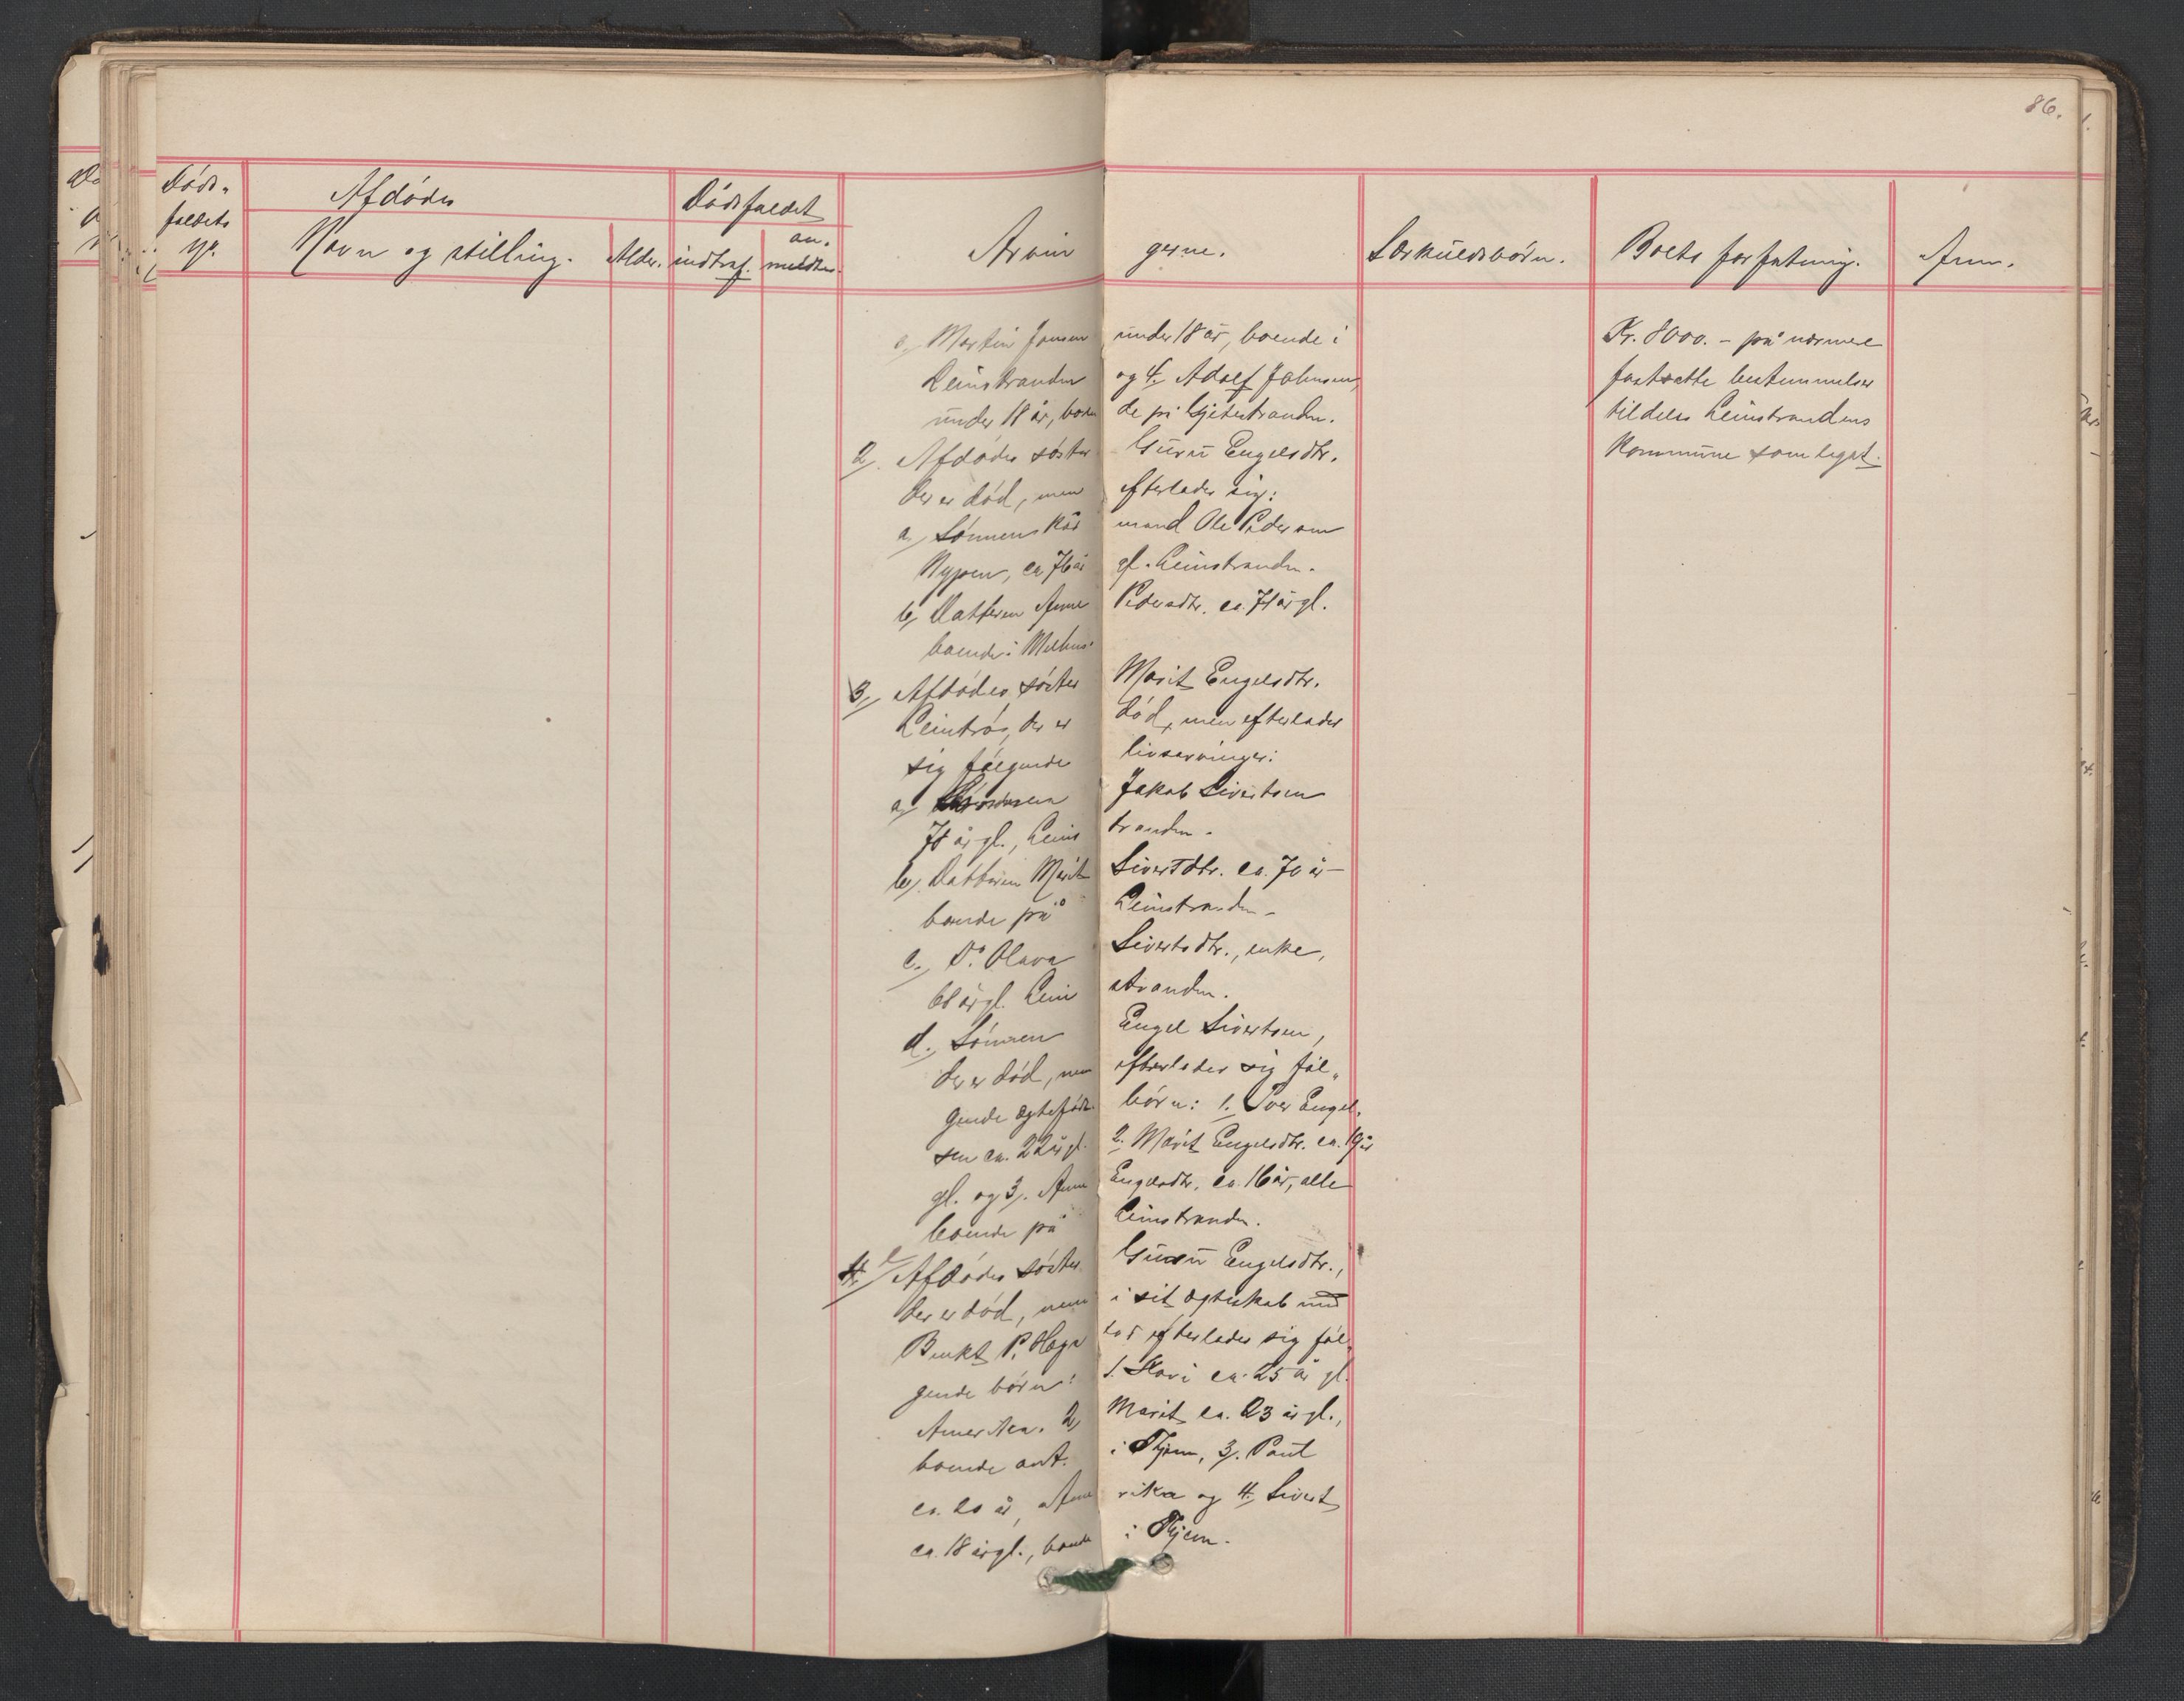 86.
Døds-
faldets
Nr.
Afdødes
Navn og stilling.
Alder.
Dødsfaldet
indtraf.
an-
meldtes.
Arvin gerne.
Særkuldsbørn.
Boets forfatning.
Anm.
3, Martin Jonsen under 18 år, boende i
Leinstranden og 4. Adolf Johnsen,
under 18 år, boen de på Gjetestranden.
2, Afdødes søster Guru Engelsdtr.
der er død, men efterlader sig:
a, Sønnen Kår mand Ole Pedersen
Nypen, ca 76 år gl. Leinstranden.
b, Datteren Anne Pedersdtr. ca. 71 år gl.
boende i Melhus.
3, Afdødes søster Marit Engelsdtr.
Leintrøa, der er død, men efterlader
sig følgende livsarvinger:
a, Sønnen Jakob Sivertsen
78 år gl., Leins tranden.
b, Datteren Marit Sivertdtr. ca. 70 år -
boende på Leinstranden -
c, Do. Olava Sivertsdtr., enke,
68 år gl. Lein stranden.
d, Sønnen Engel Sivertsen,
der er død, men efterlader sig føl-
gende ægtefødte børn: 1. Iver Engel-
sen ca. 22 år gl. 2. Marit Engelsdtr. ca. 19 år
gl. og 3. Anne Engelsdtr. ca. 16 år, alle
boende på Leinstranden.
4, e/ Afdødes søster Guru Engelsdtr.,
der er død, men i sit ægteskab med
Benkt P. Hage efterlader sig føl-
gende børn: 1. Kari ca. 25 år gl.
Amerika. 2, Marit ca. 23 år gl.,
boende ant. i Thjem, 3. Paul
ca. 20 år, Ame rika og 4. Sivert
ca. 18 år gl., boende i Thjem.
Kr. 8000. - på nærmere
fastsatte bestemmelser
tildeles Leinstrandens
Kommune som legat.